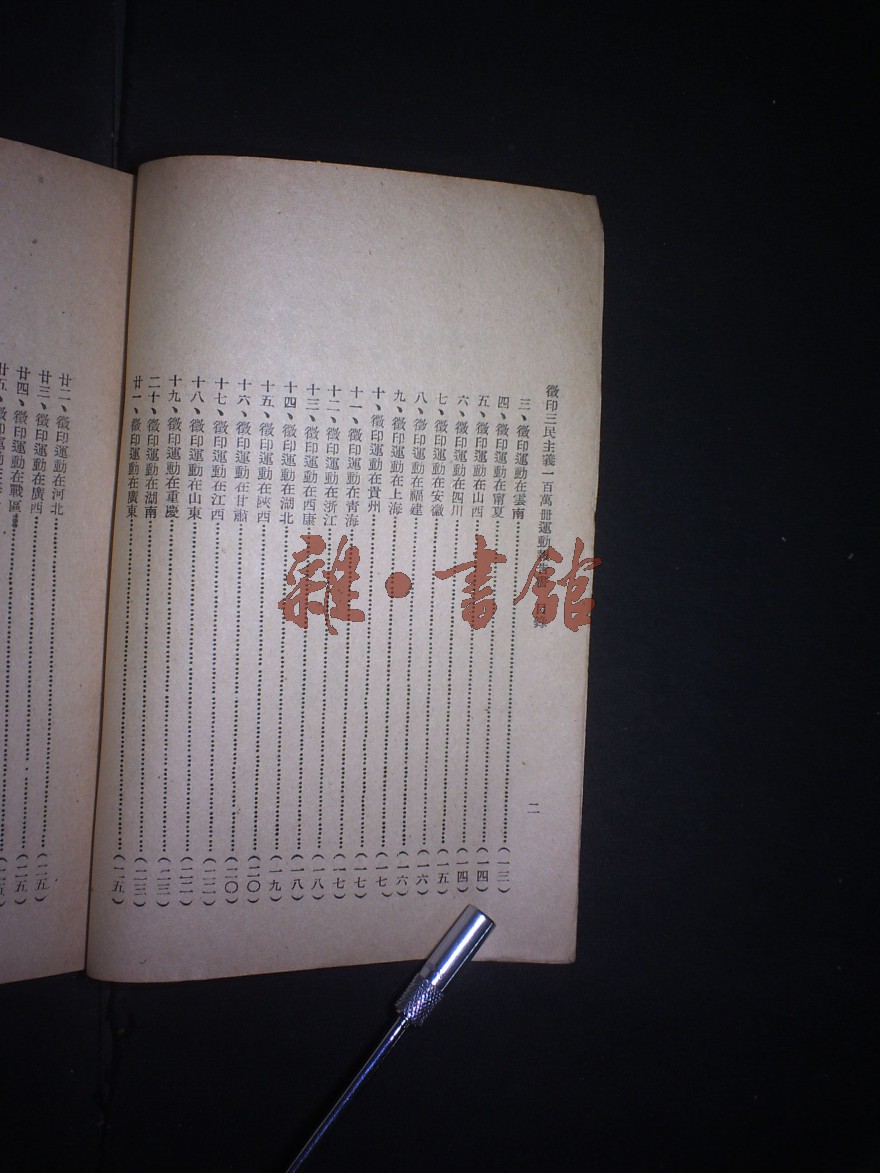 徵印三民主義一百萬冊運動報告書 目錄
二
三、徵印運動在雲南……(一三)
四、徵印運動在甯夏……(一四)
五、徵印運動在山西……(一四)
六、徵印運動在四川……(一五)
七、徵印運動在安徽……(一六)
八、徵印運動在福建……(一六)
九、徵印運動在上海……(一七)
十、徵印運動在貴州……(一七)
十一、徵印運動在青海……(一七)
十二、徵印運動在浙江……(一八)
十三、徵印運動在西康……(一八)
十四、徵印運動在湖北……(一九)
十五、徵印運動在陝西……(二〇)
十六、徵印運動在甘肅……(二〇)
十七、徵印運動在江西……(二二)
十八、徵印運動在山東……(二二)
十九、徵印運動在重慶……(二三)
二十、徵印運動在湖南……(二三)
廿一、徵印運動在廣東……(二五)
廿二、徵印運動在河北……(二五)
廿三、徵印運動在廣西……(二五)
廿四、徵印運動在戰區……
廿五、徵印運動在
雜·書館